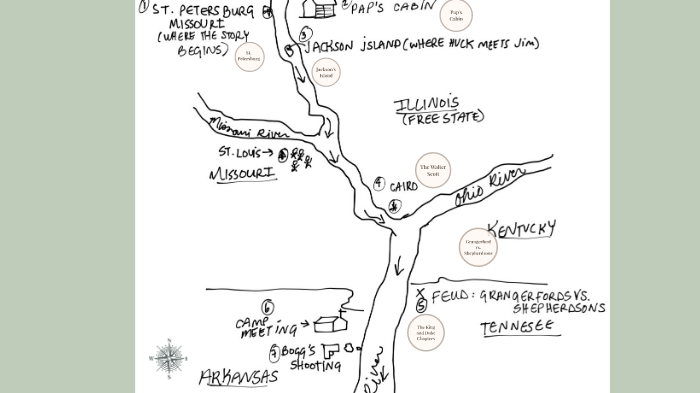 ① ST. PETERSBURG
MISSOURI
(WHERE THE STORY
BEGINS)
St.
Petersburg
② PAP'S CABIN
Pap's
Cabin
③
JACKSON ISLAND (WHERE HUCK MEETS JIM)
Jackson's
Island
ILLINOIS
(FREE STATE)
Missouri River
ST. LOUIS →
MISSOURI
④ CAIRO
The Walter
Scott
Ohio River
KENTUCKY
Grangerford
vs.
Shepherdsons
X
⑤ FEUD: GRANGERFORDS VS.
SHEPHERDSONS
TENNESEE
The King
and Duke
Chapters
⑥
CAMP
MEETING →
⑦ BOGG'S
SHOOTING
ARKANSAS
River
N
W
E
S